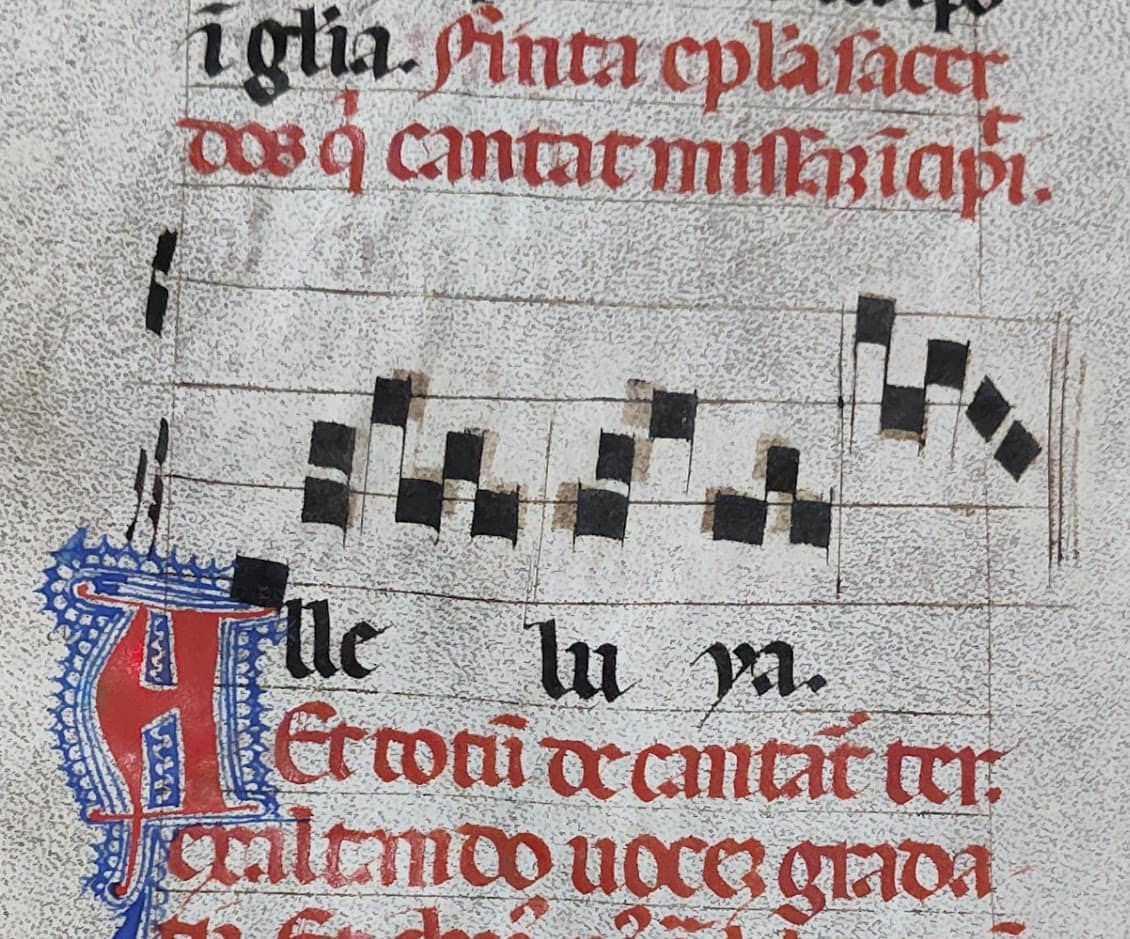 ī gl̄ia. Finita ep̄l̄a sacer
dos q̇ cantat missaꝫ īcipit.
Alle lu ya.
Et totū decantat᷑ ter.
exaltando uoceꝫ grada